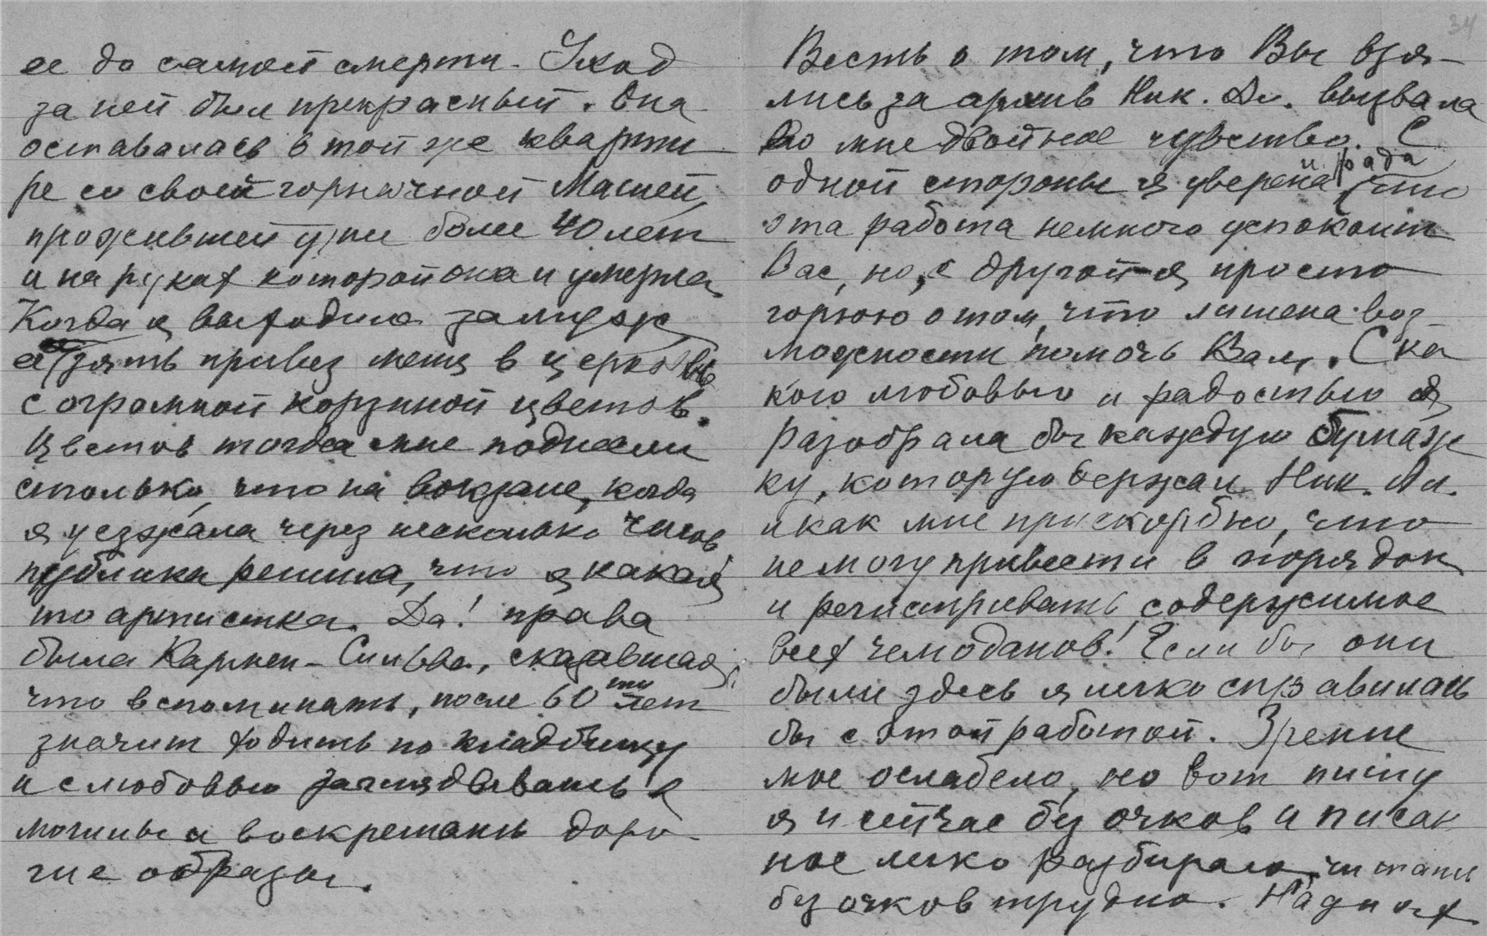 ее до самой смерти. Уход
за ней был прекрасный. Она
оставалась в той же кварти
ре со своей горничной Машей,
прожившей у них более 40 лет
и на руках которой она и умерла.
Когда я выходила замуж,
зять привез мне в церковь
с огромной корзиной цветов.
Цветов тогда мне поднесли
столько, что на вокзале, когда
я уезжала через несколько часов
публика решила, что я какая
то артистка. Да! права
была Кармен-Сильва, сказавшая,
что вспоминать, после 60 ти лет
значит ходить по кладбищу
и с любовью заглядывать в
могилы и воскрешать доро-
гие образы.
34
Весть о том, что Вы взя-
лись за архив Ник. Ал. вызвала
во мне двойное чувство. С
и рада
одной стороны я уверена, что
эта работа немного успокоит
Вас, но, с другой я просто
горюю о том, что лишена воз-
можности помочь Вам. С ка
кою любовью и радостью я
разобрала бы каждую бумаж
ку, которую держал Ник. Ал.
и как мне прискорбно, что
не могу привести в порядок
и регистрировать содержимое
всех чемоданов! Если бы они
были здесь я легко справилась
бы с этой работой. Зрение
мое ослабело, но вот пишу
я и сейчас без очков и писан
ное легко разбираю, читать
без очков трудно. На днях